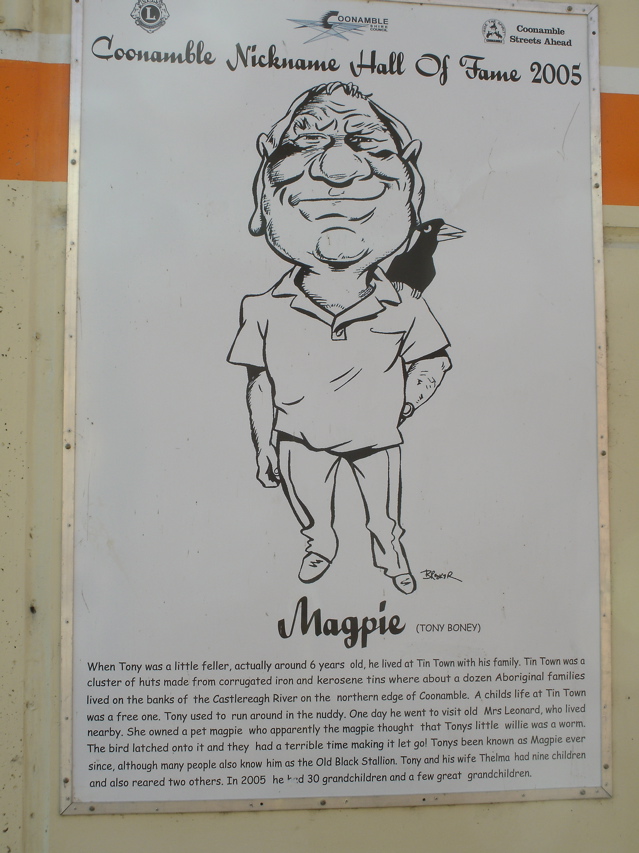 L
COONAMBLE
SHIRE
COUNCIL
Coonamble
Streets Ahead
Coonamble Nickname Hall Of Fame 2005
Magpie (TONY BONEY)
When Tony was a little feller, actually around 6 years old, he lived at Tin Town with his family. Tin Town was a
cluster of huts made from corrugated iron and kerosene tins where about a dozen Aboriginal families
lived on the banks of the Castlereagh River on the northern edge of Coonamble. A childs life at Tin Town
was a free one. Tony used to run around in the nuddy. One day he went to visit old Mrs Leonard, who lived
nearby. She owned a pet magpie who apparently the magpie thought that Tonys little willie was a worm.
The bird latched onto it and they had a terrible time making it let go! Tonys been known as Magpie ever
since, although many people also know him as the Old Black Stallion. Tony and his wife Thelma had nine children
and also reared two others. In 2005 he had 30 grandchildren and a few great grandchildren.